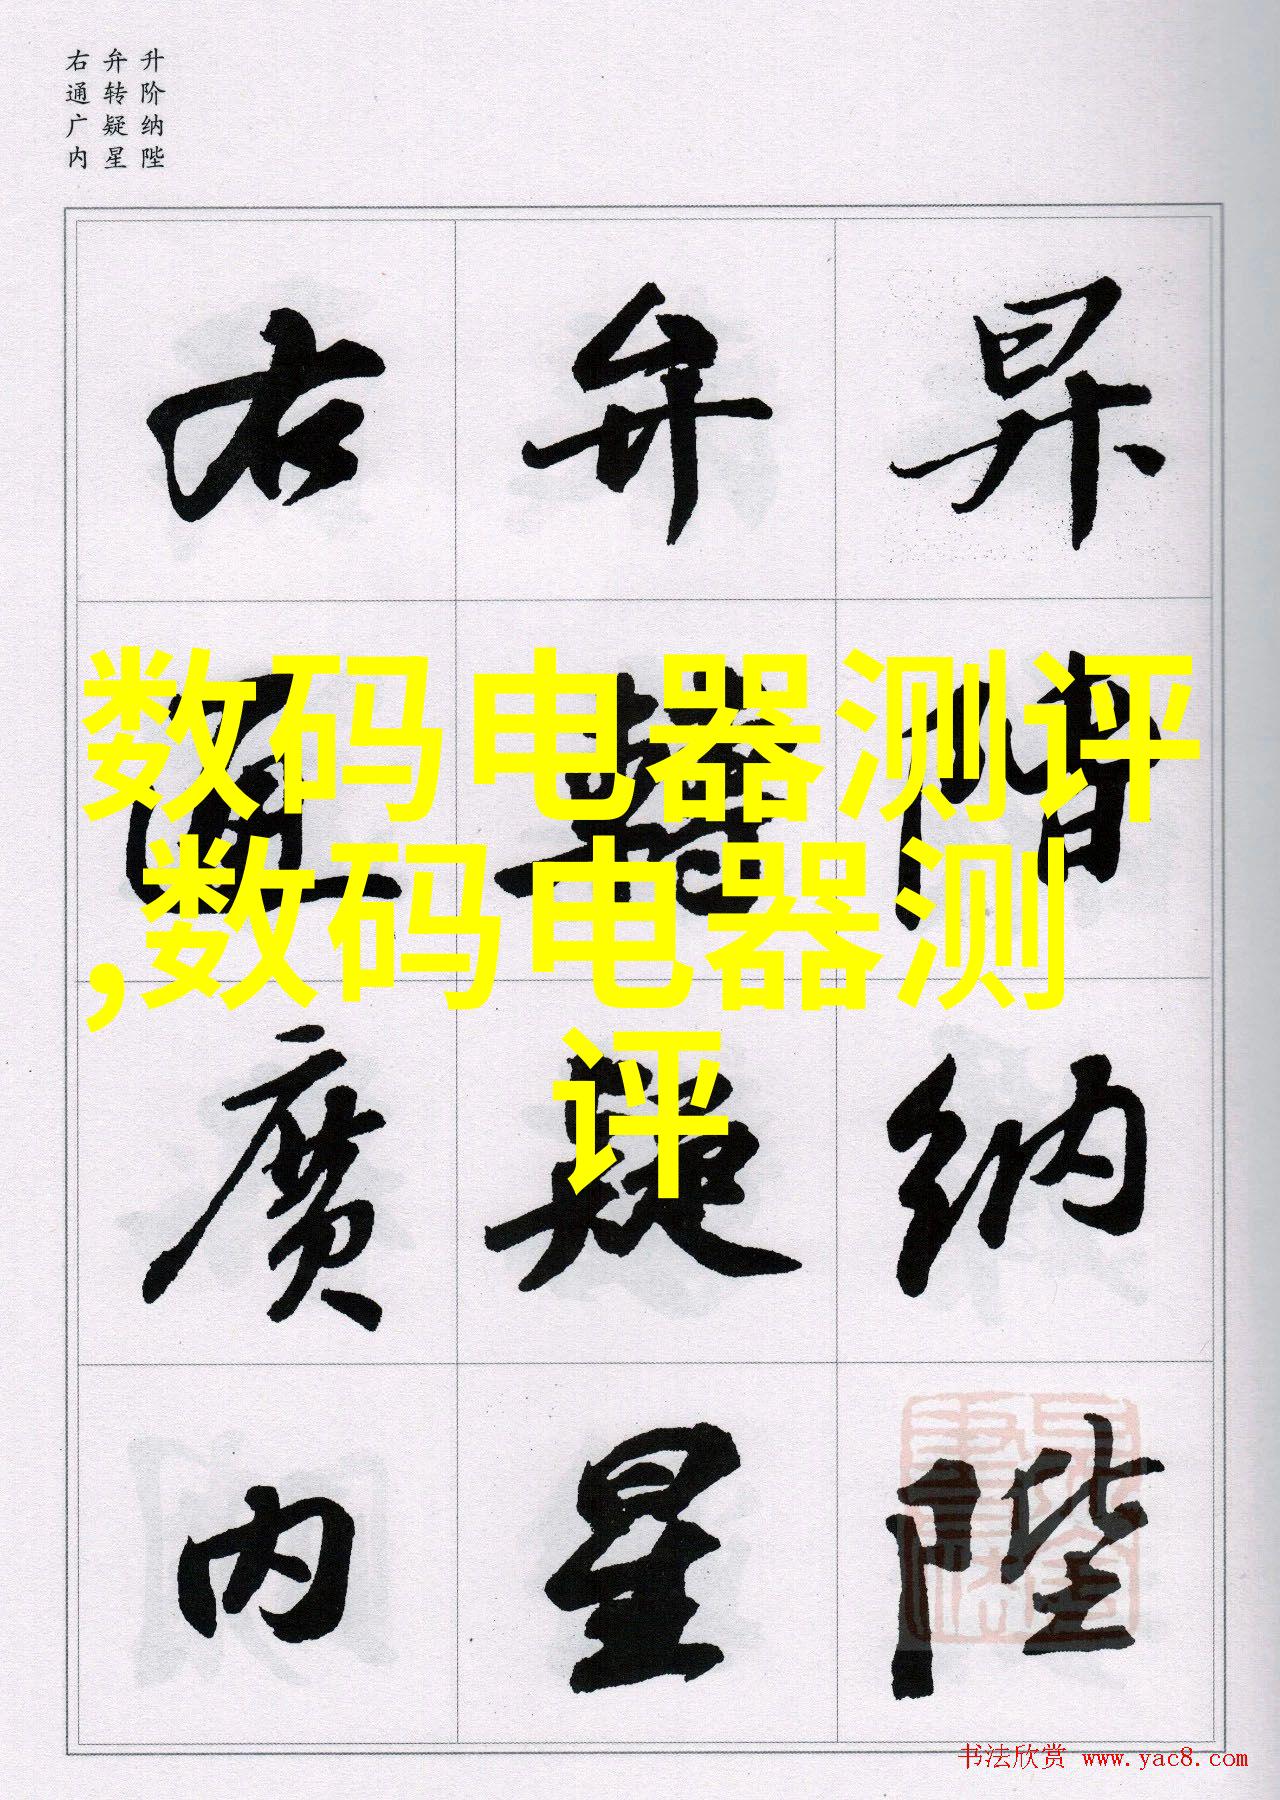 升阶纳陛
弁转疑星
右通广内
昇 階 納 陛
弁 轉 疑 星
右 通 廣 内
数码电器测评
,数码电器测
评
书法欣赏 www.yac8.com